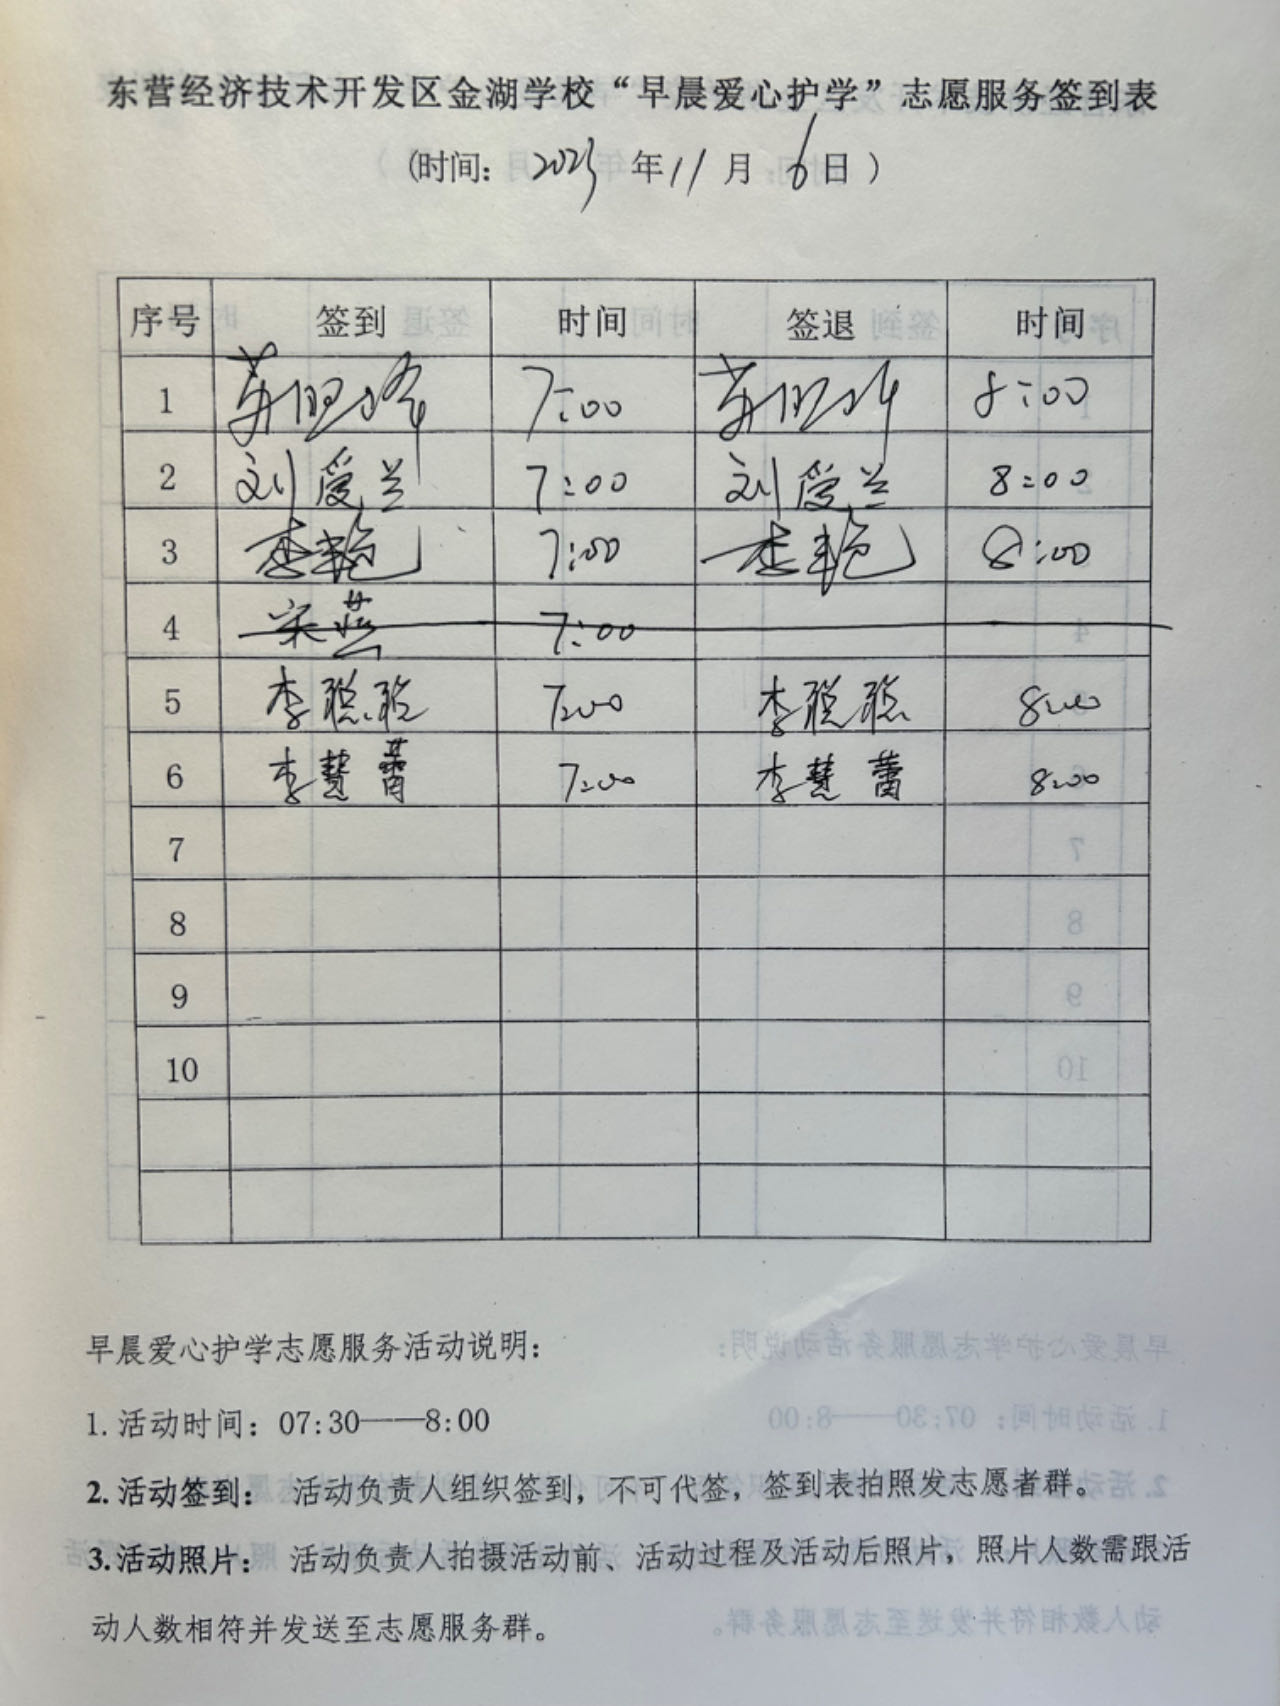 东营经济技术开发区金湖学校“早晨爱心护学”志愿服务签到表
(时间: 2023 年 11 月 6 日 )
序号 签到 时间 签退 时间
1 7:00 8:00
2 刘爱兰 7:00 刘爱兰 8:00
3 李艳 7:00 李艳 8:00
4 宋 7:00
5 李聪聪 7:00 李聪聪 8:00
6 李慧蕾 7:00 李慧蕾 8:00
7
8
9
10
早晨爱心护学志愿服务活动说明:
1. 活动时间: 07:30——8:00
2. 活动签到: 活动负责人组织签到, 不可代签, 签到表拍照发志愿者群。
3.活动照片: 活动负责人拍摄活动前、活动过程及活动后照片, 照片人数需跟活
动人数相符并发送至志愿服务群。